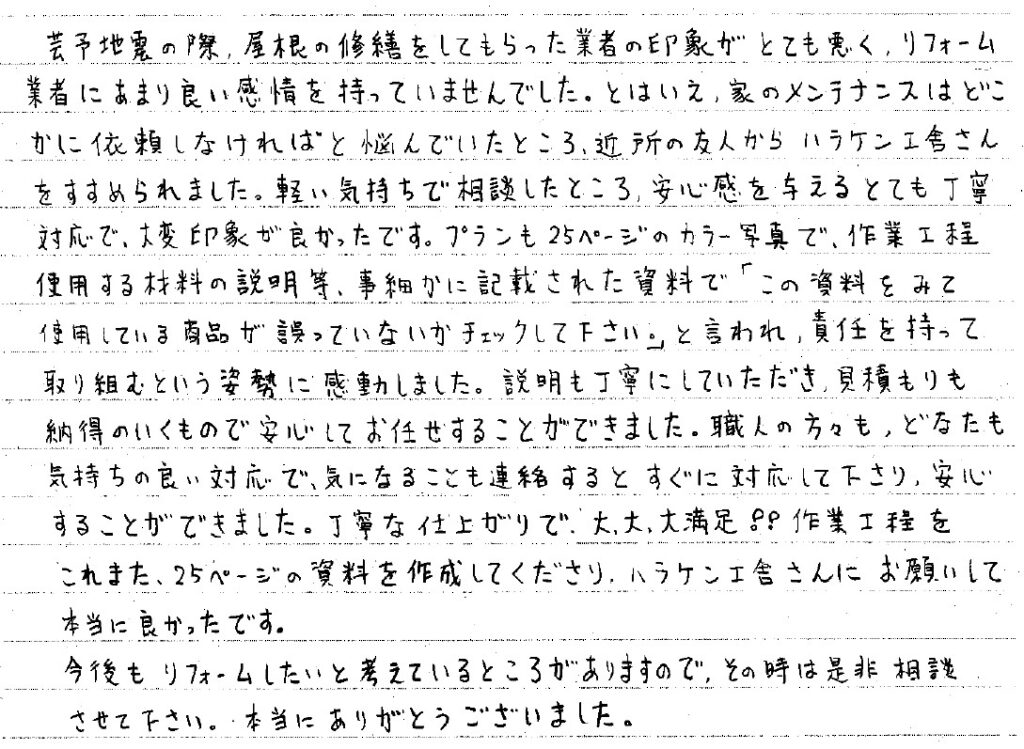 芸予地震の際、屋根の修繕をしてもらった業者の印象がとても悪く、リフォーム
業者にあまり良い感情を持っていませんでした。とはいえ、家のメンテナンスはどこ
かに依頼しなければと悩んでいたところ、近所の友人からハラケン工舎さん
をすすめられました。軽い気持ちで相談したところ、安心感を与えるとても丁寧
対応で、大変印象が良かったです。プランも25ページのカラー写真で、作業工程
使用する材料の説明等、事細かに記載された資料で「この資料をみて
使用している商品が誤っていないかチェックして下さい。」と言われ、責任を持って
取り組むという姿勢に感動しました。説明も丁寧にしていただき、見積もりも
納得のいくもので安心してお任せすることができました。職人の方々も、どなたも
気持ちの良い対応で、気になることも連絡するとすぐに対応して下さり、安心
することができました。丁寧な仕上がりで、大、大、大満足!!作業工程を
これまた、25ページの資料を作成してくださり、ハラケン工舎さんにお願いして
本当に良かったです。
今後もリフォームしたいと考えているところがありますので、その時は是非相談
させて下さい。本当にありがとうございました。